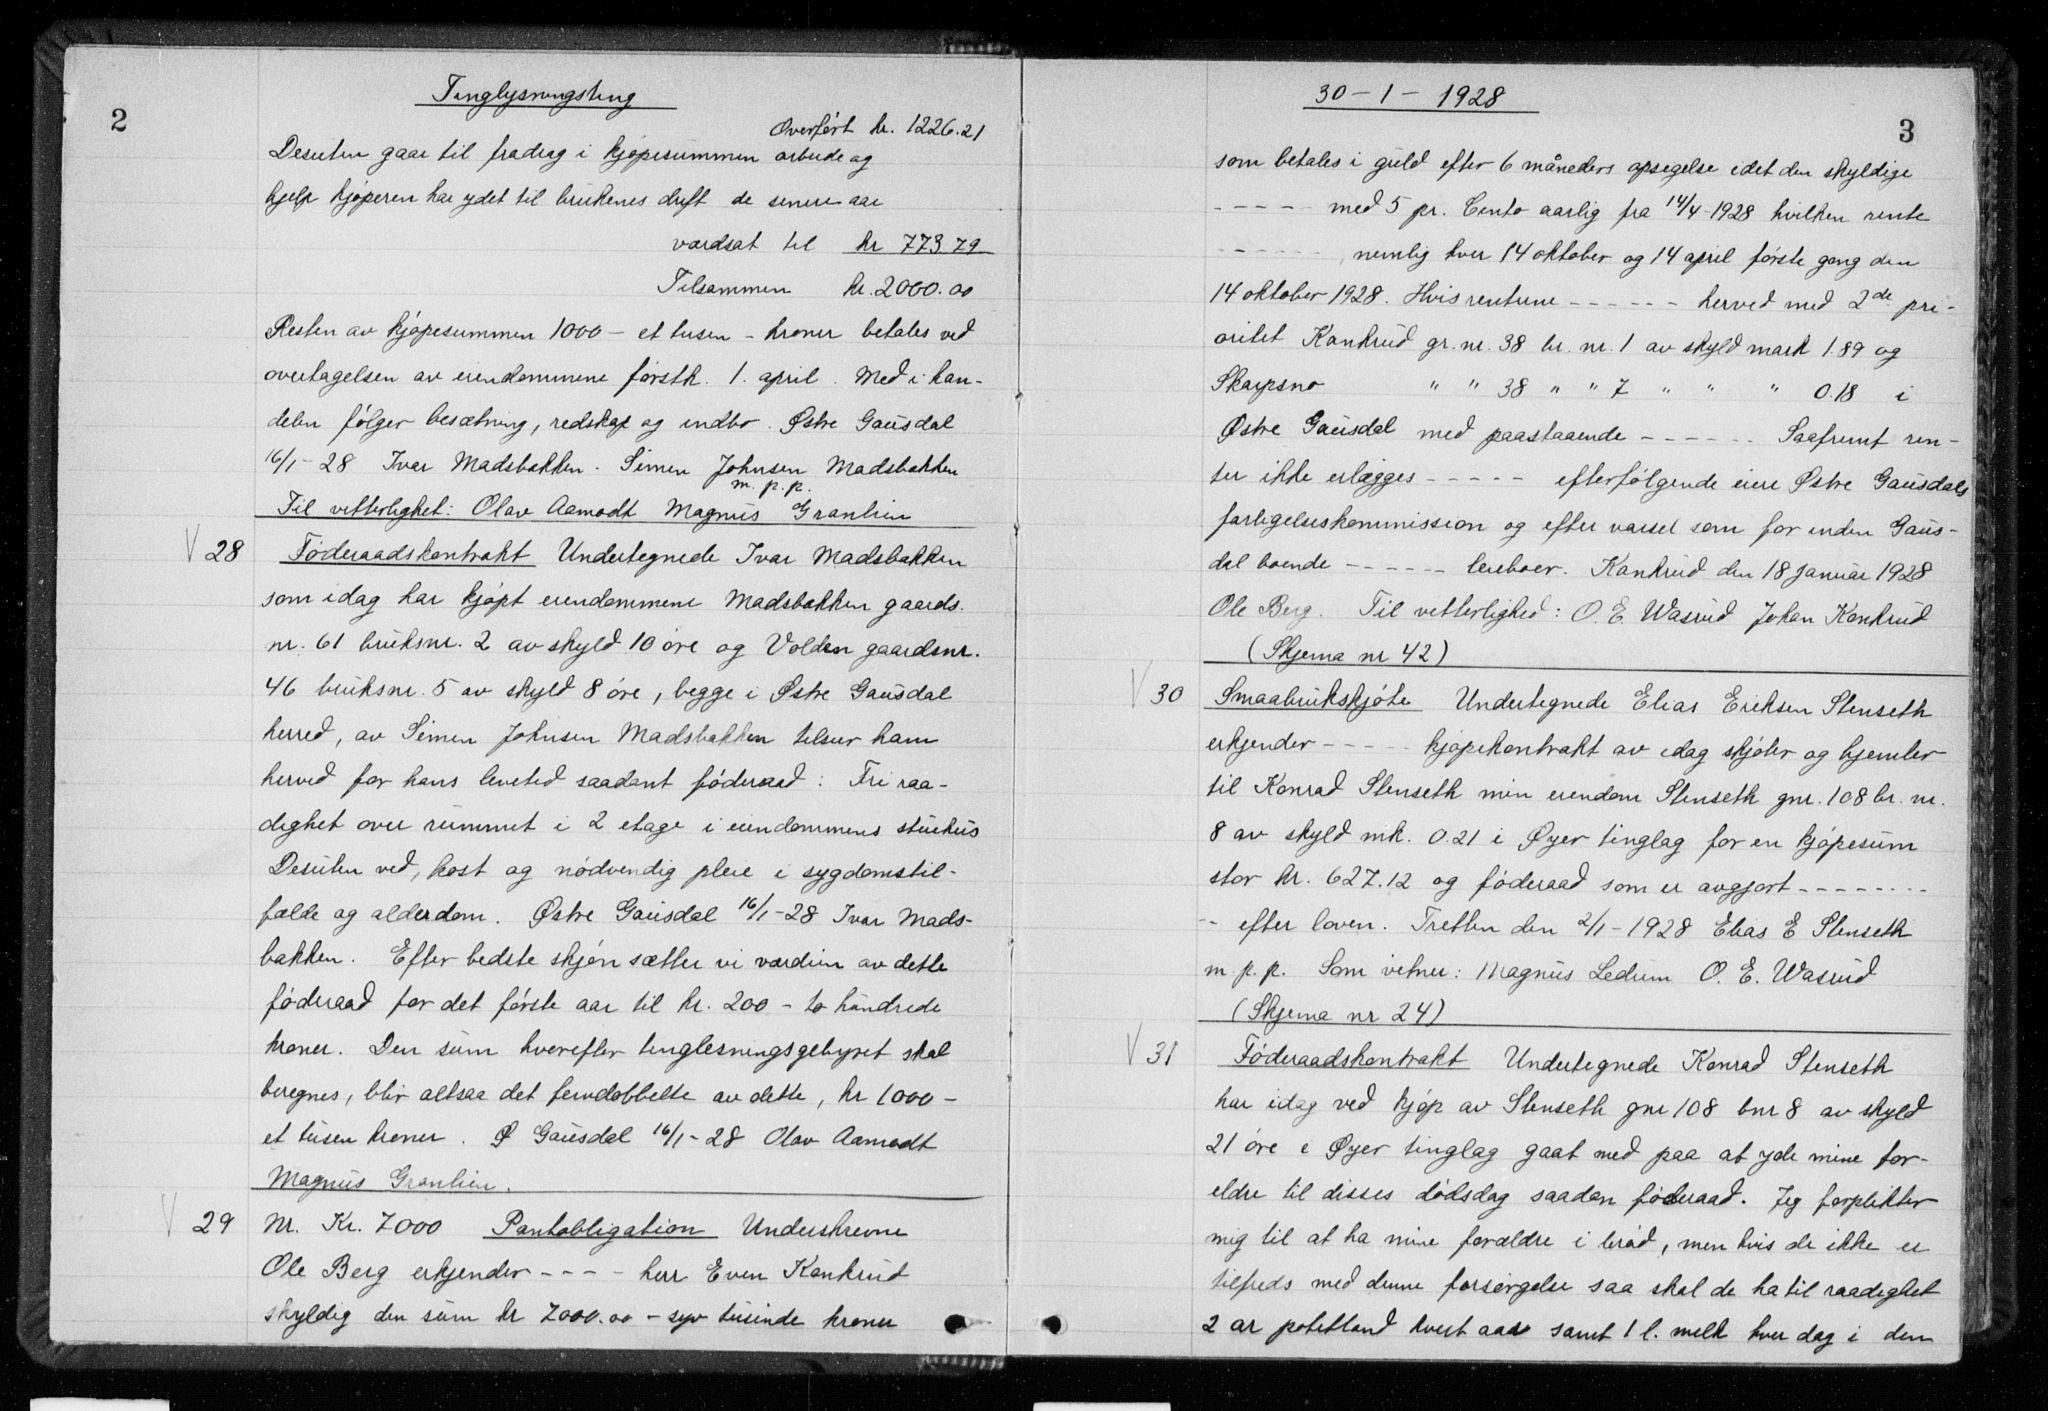 2
Tinglysningsting
Overført kr. 1226.21
Desuten gaar til fradrag i kjøpesummen arbeide og
hjelp kjøperen har ydet til brukenes drift de senere aar
værdsat til kr 773.79
Tilsammen kr. 2000.00
Resten av kjøpesummen 1000 – et tusen – kroner betales ved
overtagelsen av eiendommene førstk. 1. april. Med i han-
delen følger besætning, redskap og indbo. Østre Gausdal
16/1-28 Ivar Madsbakken. Simen Johnsen Madsbakken
m. p. p.
Til vitterlighet: Olav Aamodt Magnus Granlien
V 28 Føderaadskontrakt Undertegnede Ivar Madsbakken
som idag har kjøpt eiendommene Madsbakken gaards.
nr. 61 bruksnr. 2 av skyld 10 øre og Volden gaardsnr.
46 bruksnr. 5 av skyld 8 øre, begge i Østre Gausdal
herred, av Simen Johnsen Madsbakken tilsier ham
herved for hans levetid saadant føderaad: Fri raa-
dighet over rummet i 2 etage i eiendommens stuehus
Desuten ved, kost og nødvendig pleie i sygdomstil-
fælde og alderdom. Østre Gausdal 16/1-28 Ivar Mads-
bakken. Efter bedste skjøn sætter vi værdien av dette
føderaad for det første aar til kr. 200 – to hundrede
kroner. Den sum hvorefter tinglesningsgebyret skal
beregnes, blir altsaa det femdobbelte av dette, kr 1000 –
et tusen kroner. Ø Gausdal 16/1-28 Olav Aamodt
Magnus Granlien.
V 29 Nr. Kr. 7000 Pantobligation Underskrevne
Ole Berg erkjender - - - - herr Even Kankrud
skyldig den sum kr 7000.00 – syv tusinde kroner
30 – 1 – 1928
3
som betales i guld efter 6 måneders opsegelse idet den skyldige
- - - - med 5 pr. Cento aarlig fra 14/4-1928 hvilken rente
- - - - - , nemlig hver 14 oktober og 14 april første gang den
14 oktober 1928. Hvis rentene - - - - - - herved med 2de pri-
oritet Kankrud gr. nr. 38 br. nr. 1 av skyld mark 1.89 og
Skarpsno " " 38 " " 7 " " " 0.18 i
Østre Gausdal med paastaaende - - - - - - Saafremt ren-
ter ikke erlægges - - - - - efterfølgende eiere Østre Gausdals
forligelseskommission og efter varsel som for inden Gaus-
dal boende - - - - - - leieboer. Kankrud den 18 januar 1928
Ole Berg. Til vitterlighed: O. E. Wasrud Johan Kankrud
(Skjema nr 42)
V 30 Smaabrukskjøte Undertegnede Elias Eriksen Stenseth
erkjender - - - - - kjøpekontrakt av idag skjøter og hjemler
til Konrad Stenseth min eiendom Stenseth gnr. 108 br. nr.
8 av skyld mk. 0.21 i Øyer tinglag for en kjøpesum
stor kr. 627.12 og føderaad som er avgjort - - - - - - - -
- - efter loven. Tretten den 2/1 – 1928 Elias E Stenseth
m. p. p. Som vitner: Magnus Ledum O. E. Wasrud
(Skjema nr 24)
V 31 Føderaadskontrakt Undertegnede Konrad Stenseth
har idag ved kjøp av Stenseth gnr 108 bnr 8 av skyld
21 øre i Øyer tinglag gaat med paa at yde mine for-
eldre til disses dødsdag saadan føderaad. Jeg forplikter
mig til at ha mine forældre i brød, men hvis de ikke er
tilfreds med denne forsørgelse saa skal de ha til raadighet
2 ar potetland hvert aar samt 1 l. melk hver dag i den